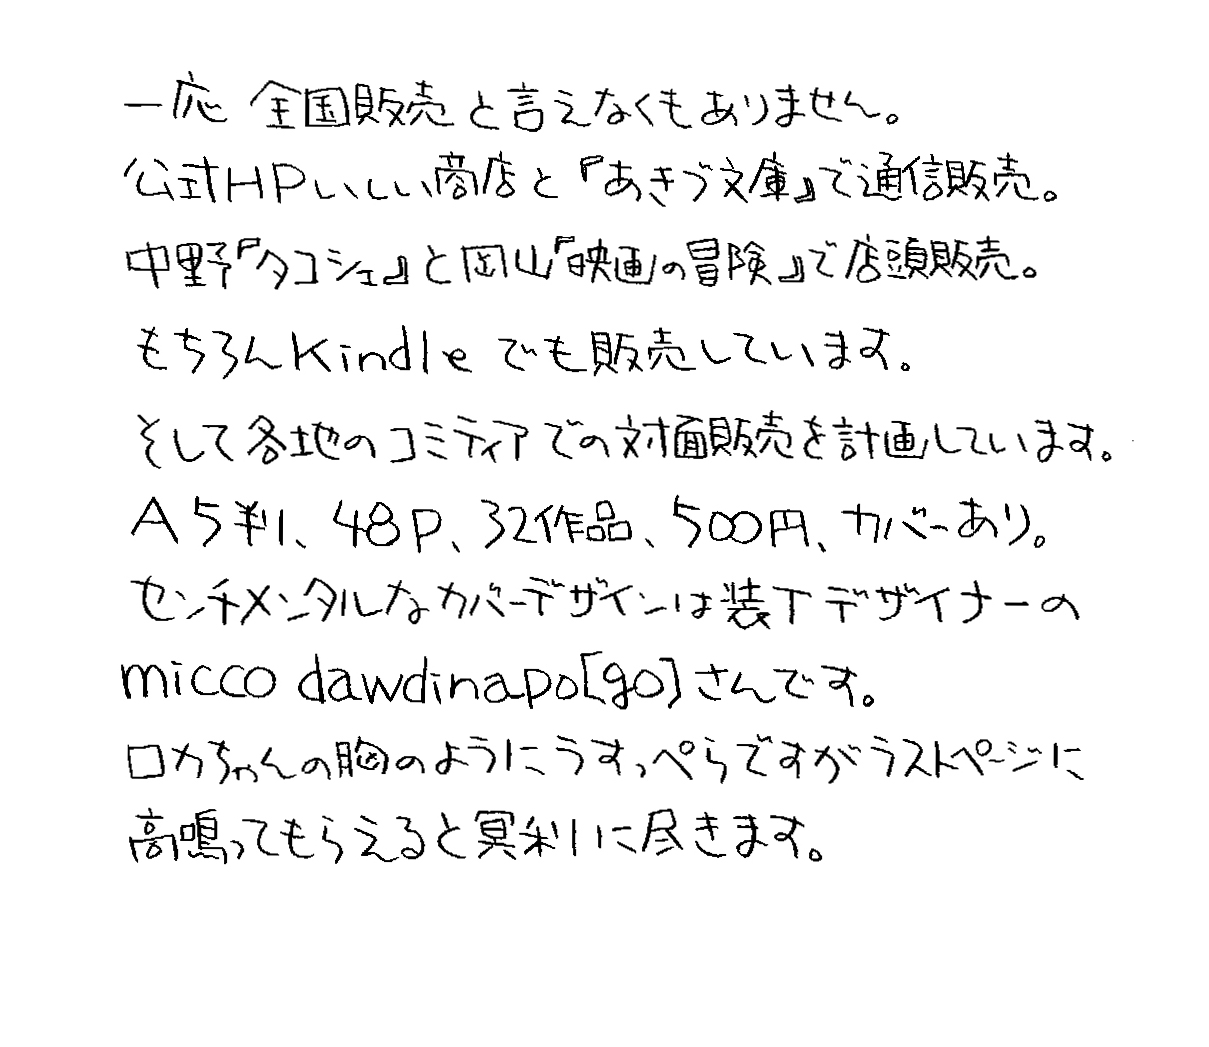 一応 全国販売と言えなくもありません。
公式HPいしい商店と『あきづ文庫』で通信販売。
中野『タコシェ』と岡山『映画の冒険』で店頭販売。
もちろんKindleでも販売しています。
そして各地のコミティアでの対面販売を計画しています。
A5判、48P、32作品、500円、カバーあり。
センチメンタルなカバーデザインは装丁デザイナーの
micco dawdinapo[go]さんです。
ロカちゃんの胸のようにうすっぺらですがラストページに
高鳴ってもらえると冥利に尽きます。